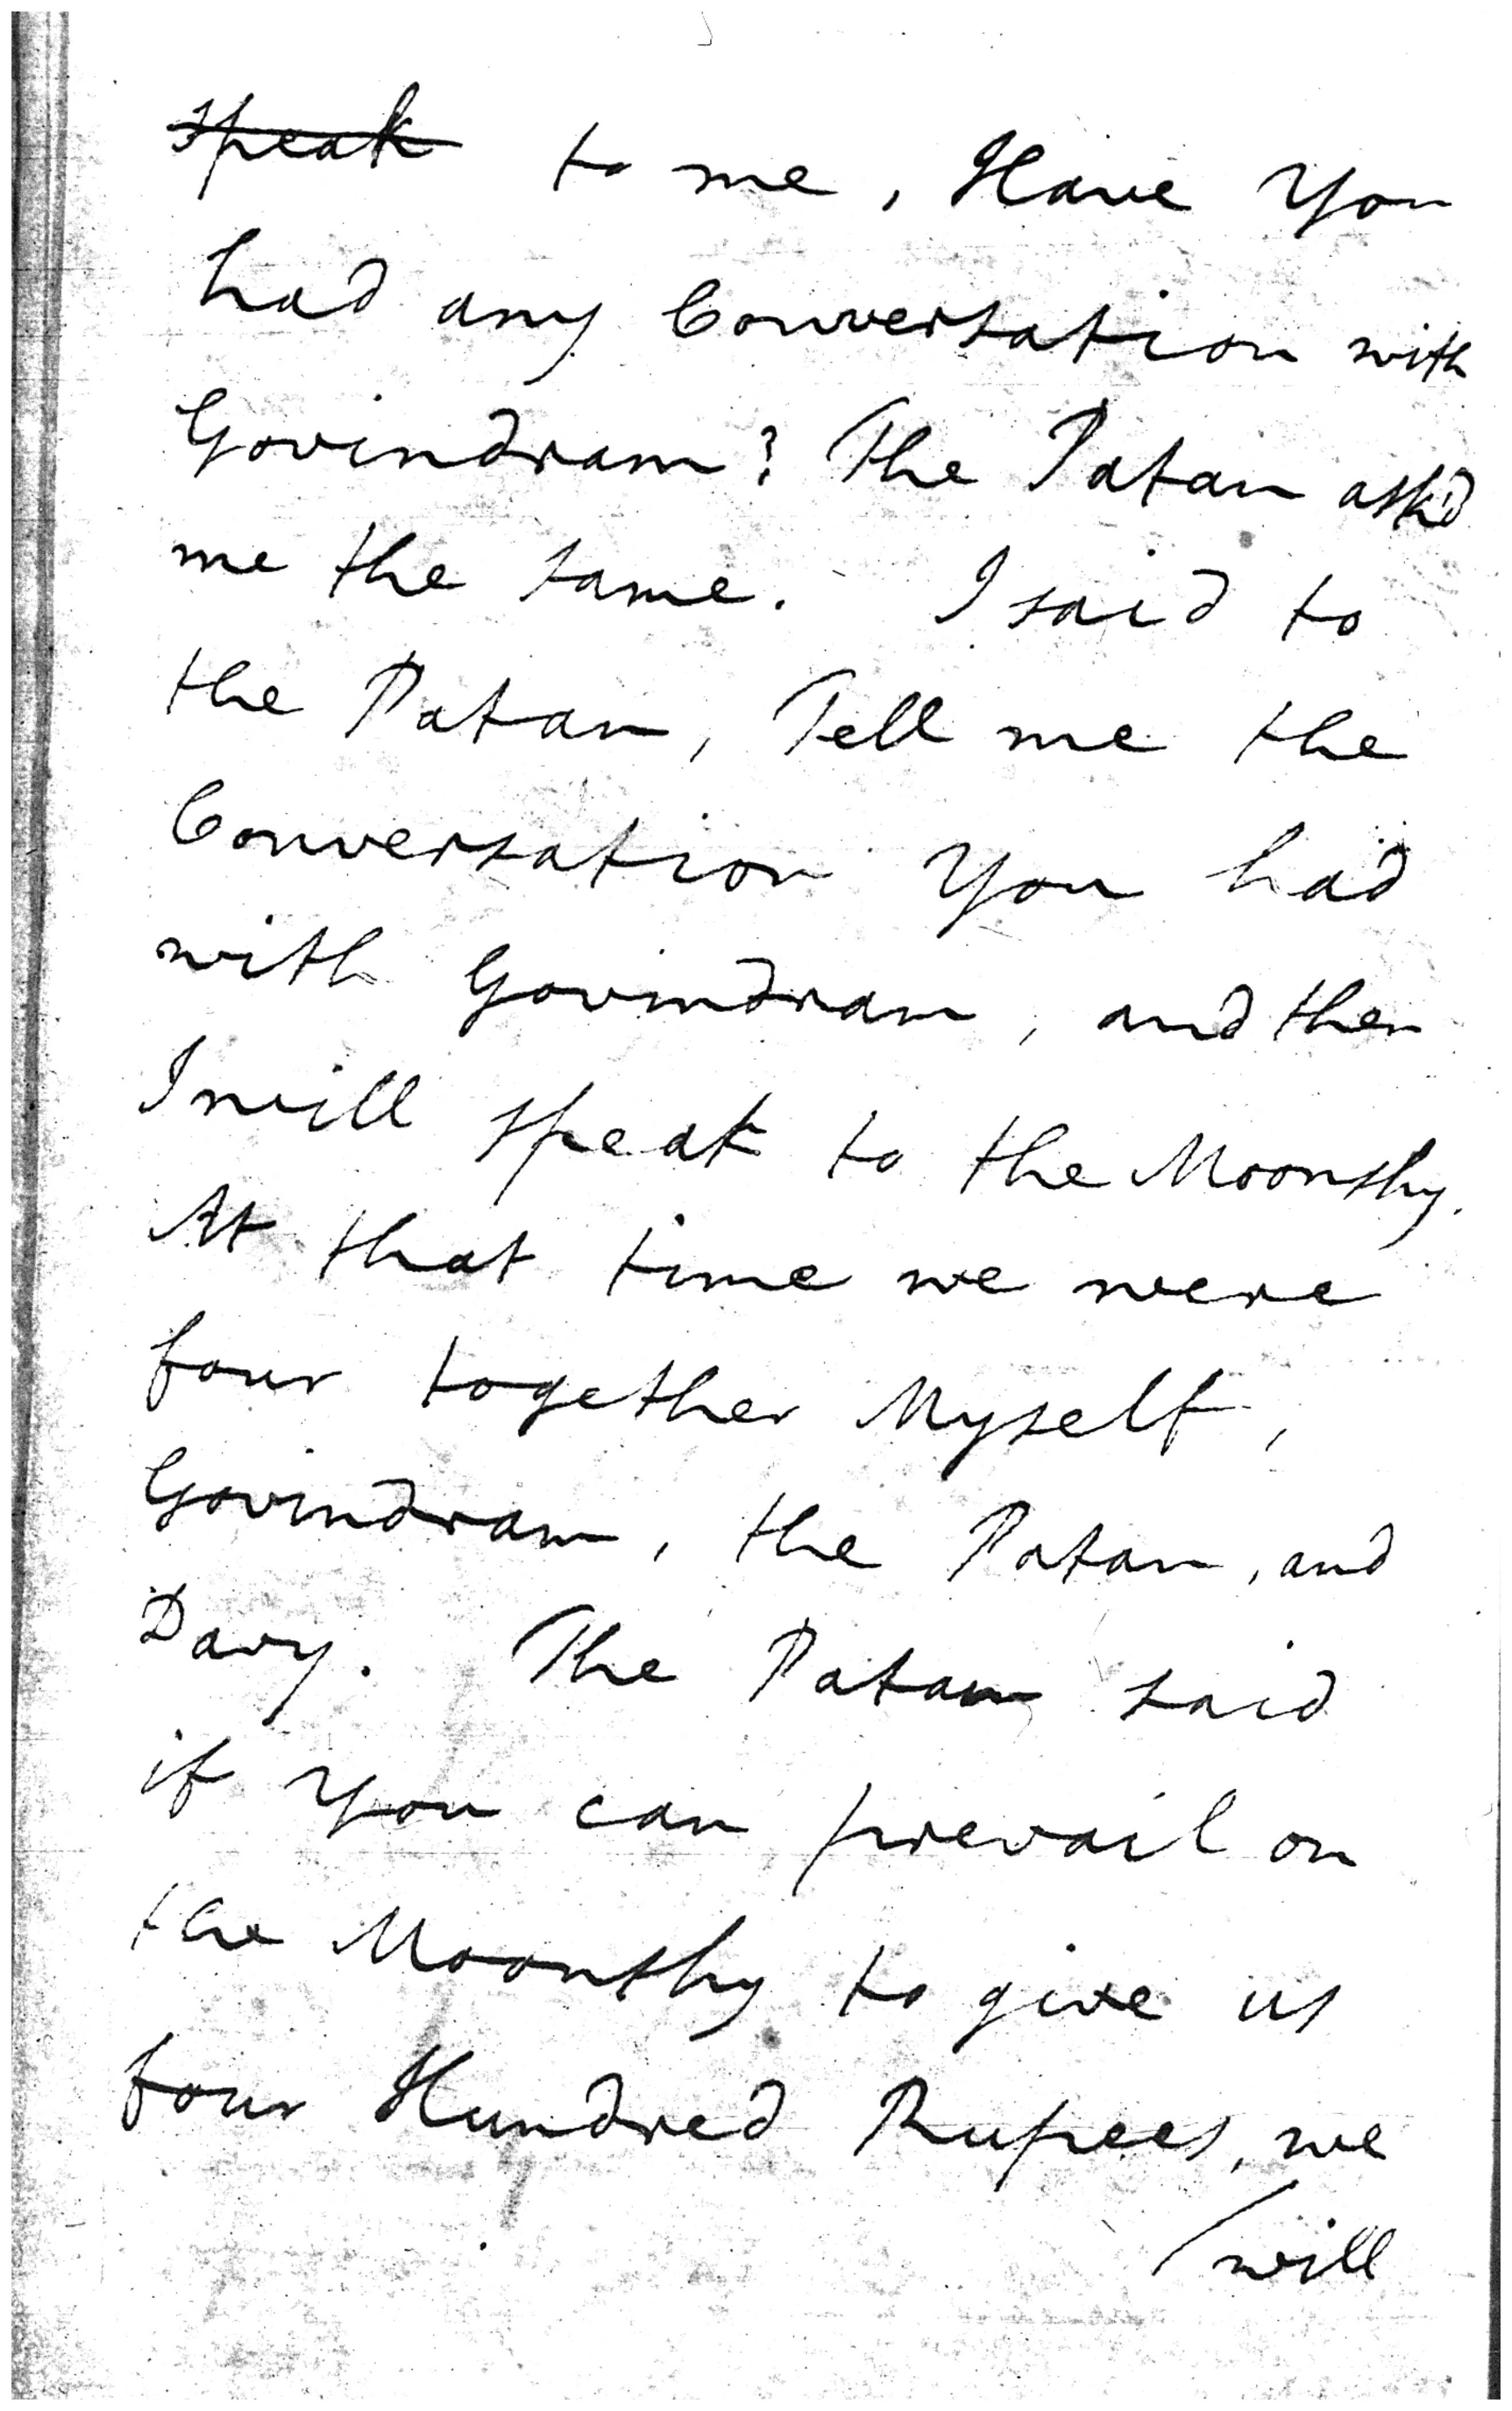 speak to me, Have You
had any Conversation with
Govindram? The Patan ask'd
me the same. I said to
the Patan, Tell me the
Conversation You had
with Govindram, and then
I will speak to the Moonshy.
At that time we were
four together Myself,
Govindram, the Patan, and
Davy. The Patan said
if You can prevail on
the Moonshy to give us
four Hundred Rupees, we
/will